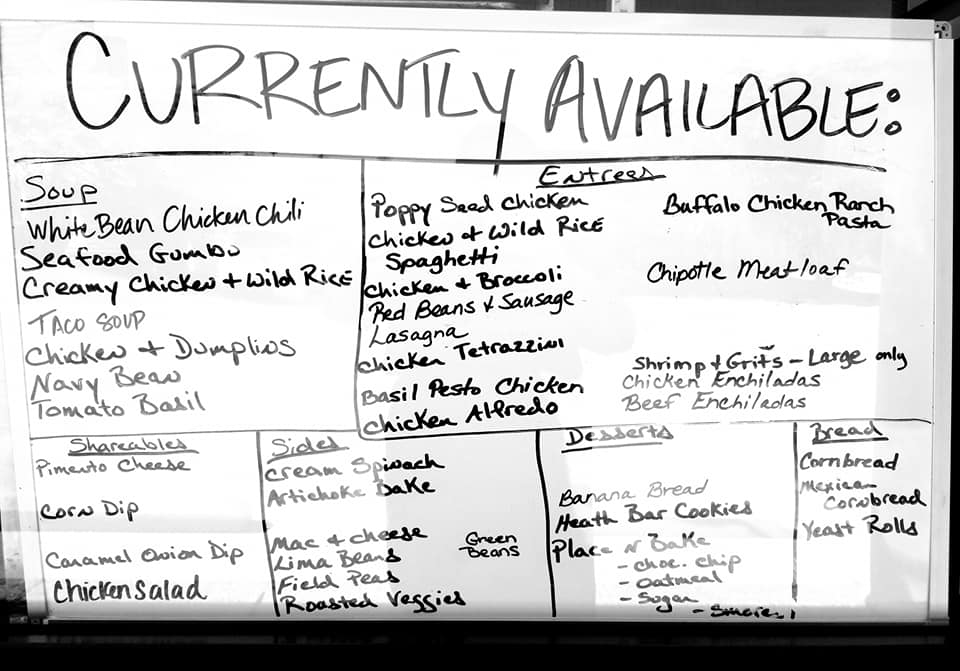 CURRENTLY AVAILABLE:
Soup
White Bean Chicken Chili
Seafood Gumbo
Creamy Chicken + Wild Rice
Taco Soup
Chicken + Dumplins
Navy Bean
Tomato Basil
Entrees
Poppy Seed Chicken
Chicken + Wild Rice
Spaghetti
Chicken + Broccoli
Red Beans + Sausage
Lasagna
Chicken Tetrazzini
Basil Pesto Chicken
Chicken Alfredo
Buffalo Chicken Ranch
Pasta
Chipotle Meatloaf
Shrimp + Grits - Large only
Chicken Enchiladas
Beef Enchiladas
Shareables
Pimento Cheese
Corn Dip
Caramel Onion Dip
Chicken Salad
Sides
Cream Spinach
Artichoke Bake
Mac + Cheese
Lima Beans
Field Peas
Roasted Veggies
Green
Beans
Desserts
Banana Bread
Heath Bar Cookies
Place N Bake
- Choc. Chip
- Oatmeal
- Sugar
Bread
Cornbread
Mexican
Cornbread
Yeast Rolls